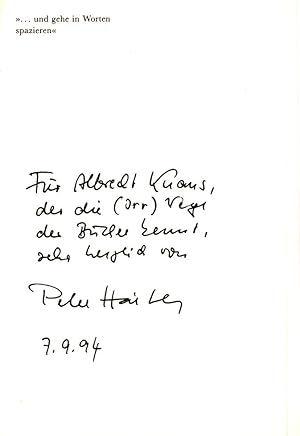 »... und gehe in Worten
spazieren«
Für Albrecht Knaus,
der die (Irr) Wege
der Bücher kennt,
sehr herzlich von
Peter Härtling
7.9.94